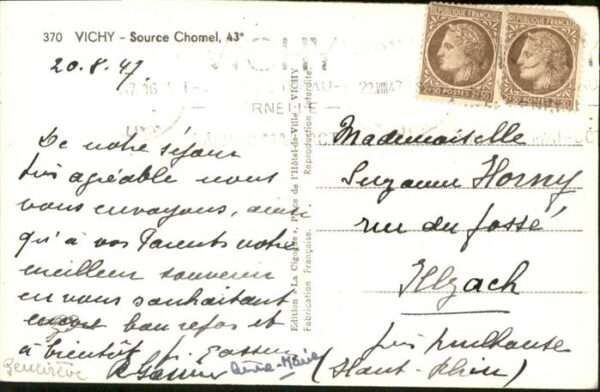 370 VICHY - Source Chomel, 43°
20.8.47
REPUBLIQUE FRANÇAISE
REPUBLIQUE FRANÇAISE
POSTES
POSTES
De notre séjour
très agréable nous
vous envoyons, ainsi
qu'à vos Parents notre
meilleur souvenir
en vous souhaitant
encore bon repos et
à bientôt
Geneviève
Anne-Marie
Edition « La Cigogne », Place de l'Hôtel-de-Ville, VICHY
Fabrication Française. Reproduction interdite.
Mademoiselle
Suzanne Horny
rue du fossé
Illzach
près Mulhouse
(Haut-Rhin)